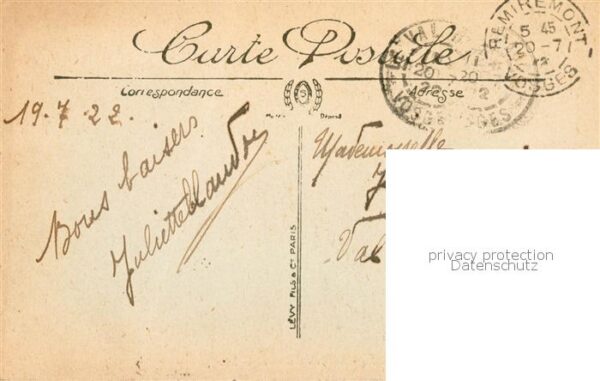 Carte Postale
Correspondance
Adresse
REMIREMONT
5 45
20 - 7
VOSGES
VOSGES
19.7.22.
Bons baisers
Juliette
Mademoiselle
J
Val
LÉVY FILS & Cie PARIS
privacy protection
Datenschutz